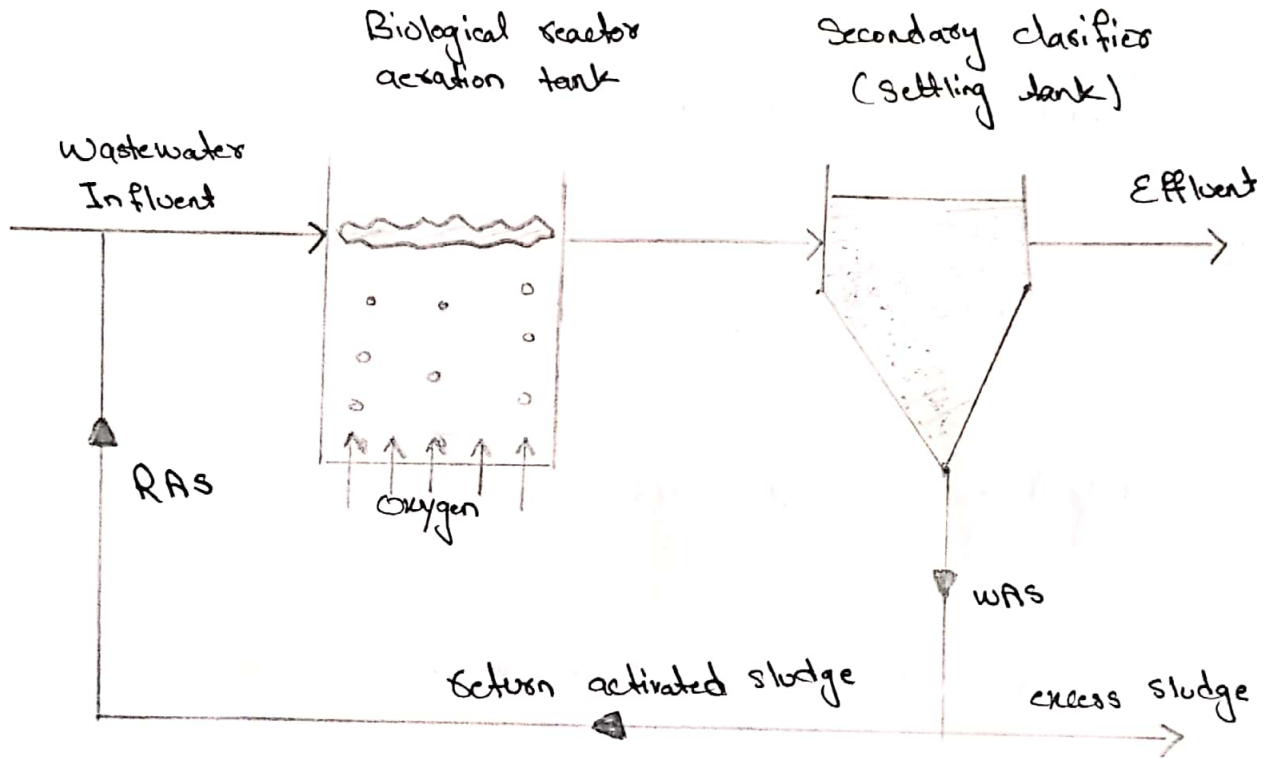 Biological reactor
aeration tank
Secondary clarifier
(settling tank)
Wastewater
Influent
Effluent
RAS
Oxygen
WAS
return activated sludge
excess sludge